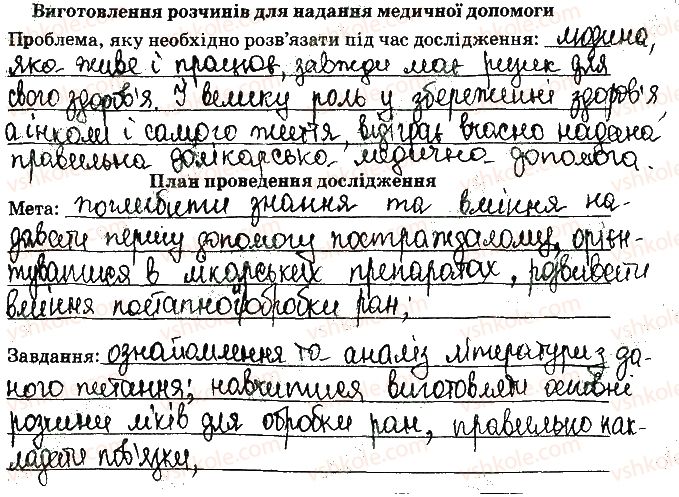 Виготовлення розчинів для надання медичної допомоги
Проблема, яку необхідно розв'язати під час дослідження: людина,
яка живе і працює, завжди має ризик для
свого здоров'я. І велику роль у збереженні здоров'я
а інколи і самого життя, відіграє вчасно надана
правильна долікарська медична допомога.
План проведення дослідження
Мета: поглибити знання та вміння на-
давати першу допомогу постраждалому, орієн-
туватися в лікарських препаратах, розвивати
вміння поетапної обробки ран;
Завдання: ознайомлення та аналіз літератури з да-
ного питання; навчитися виготовляти основні
розчини ліків для обробки ран, правильно нак-
ладати пов'язки,